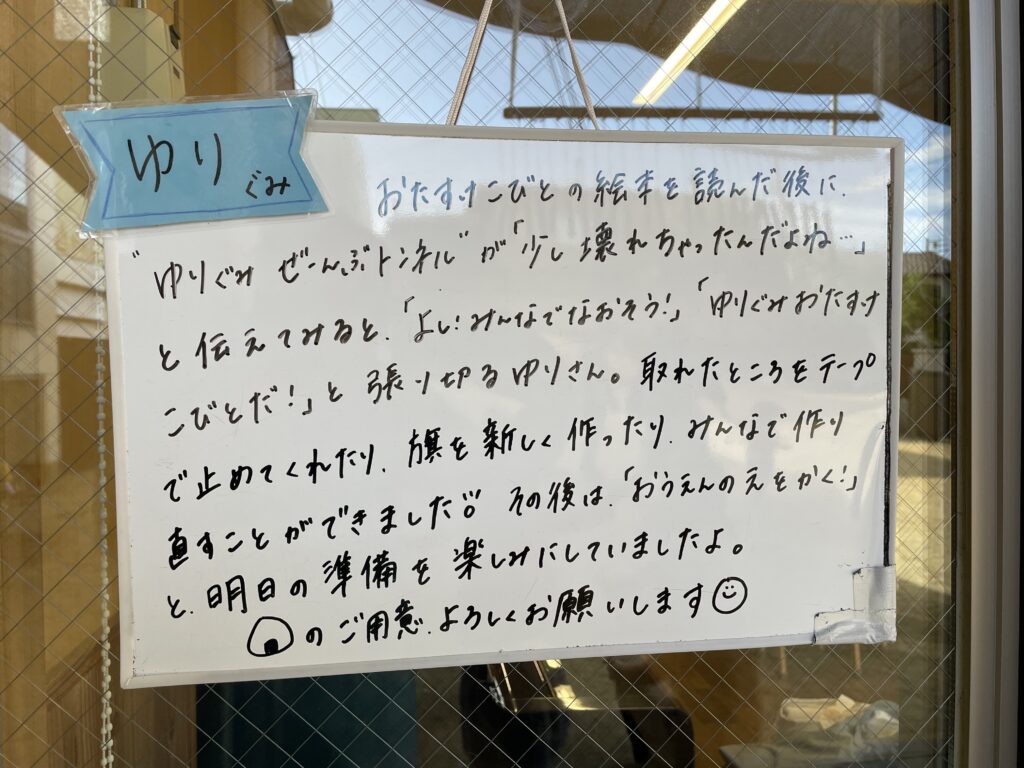 ゆり
ぐみ
おたすけこびとの絵本を読んだ後に、
"ゆりぐみ ぜーんぶトンネル"が「少し壊れちゃったんだよね…」
と伝えてみると、「よし!みんなでなおそう!」「ゆりぐみおたすけ
こびとだ!」と張り切るゆりさん。取れたところをテープ
で止めてくれたり、旗を新しく作ったり、みんなで作り
直すことができました!! その後は、「おうえんのえをかく!」
と、明日の準備を楽しみにしていましたよ。
🍙のご用意、よろしくお願いします☺